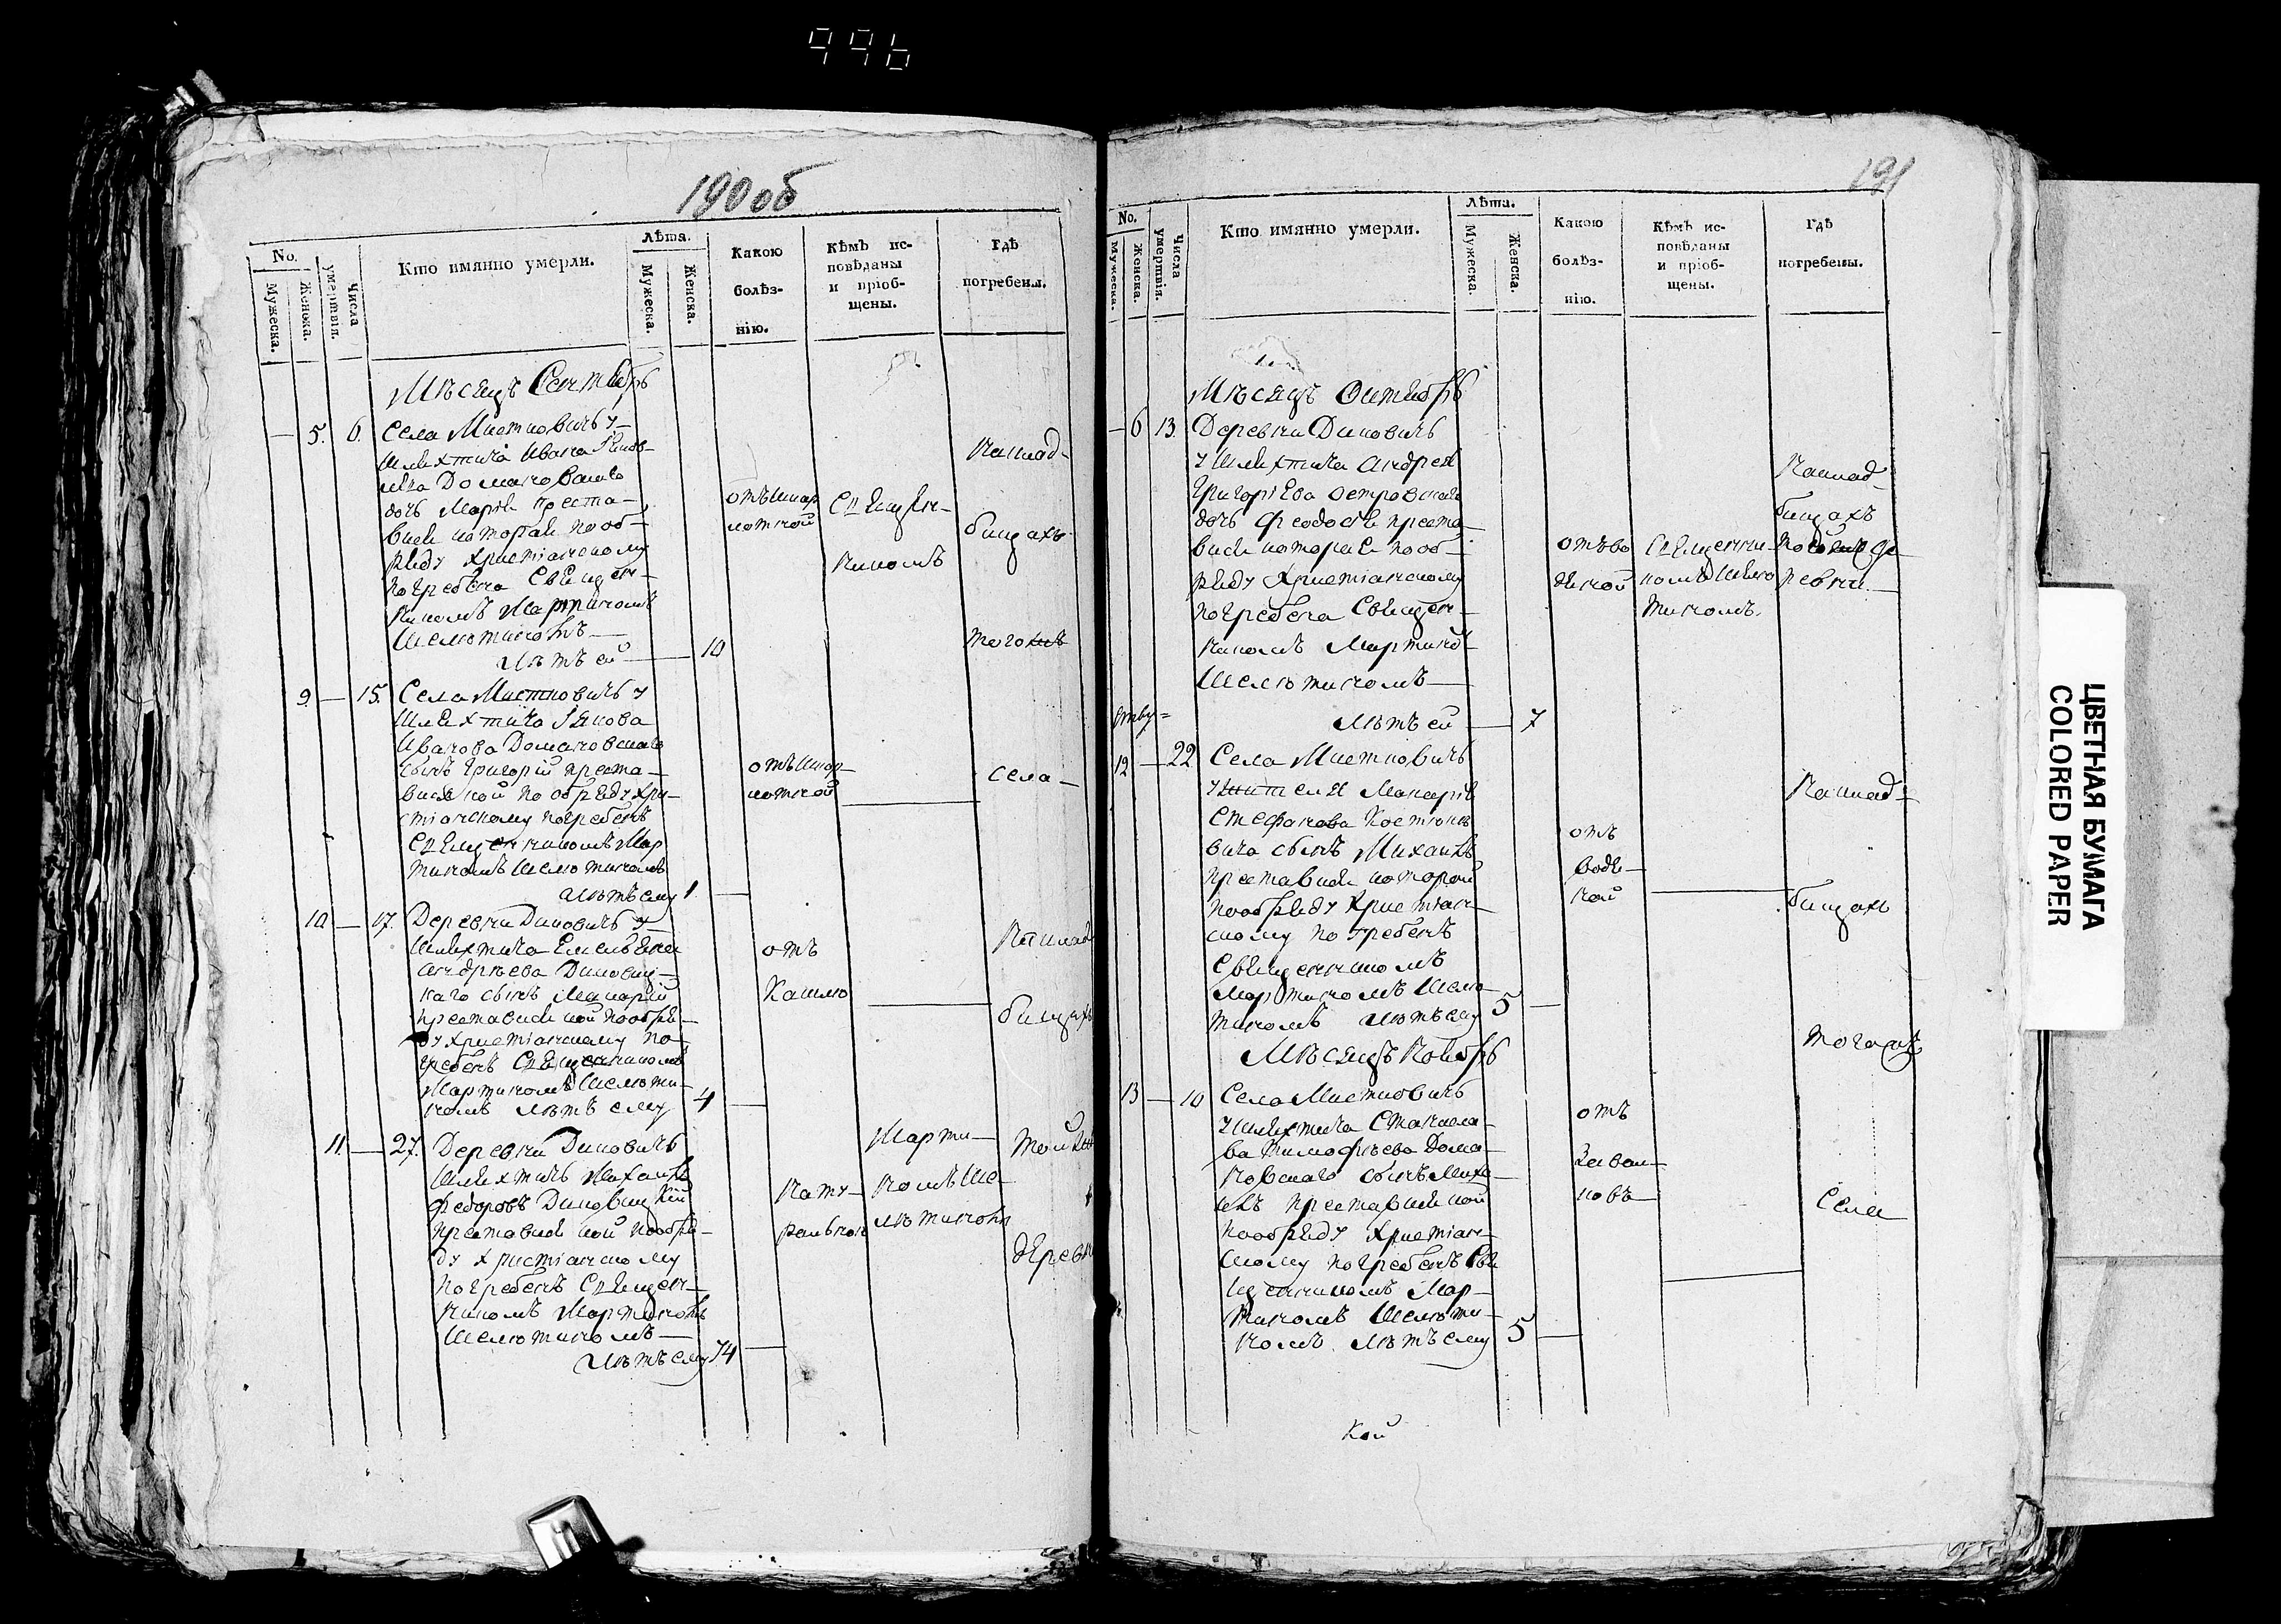 996
190об
No.
Мужеска.
Женска.
Числа умертвія.
Кто имянно умерли.
Лѣта.
Мужеска.
Женска.
Какою
болѣз-
нію.
Кѣмъ ис-
повѣданы
и пріоб-
щены.
Гдѣ
погребены.
Мѣсяцъ Сентябрь
5. 6. Села Мистковичь у
Шляхтича Ивана
дочь Марія преста-
вися которая по об-
ряду Христіанскому
погребена Священ-
никомъ Мартиномъ
Шелютиномъ
лѣтъ ей 10
Священ-
никомъ
Кллад-
бищахъ
тогожъ
села
9 — 15. Села Мистковичь у
Шляхтича Якова
Иванова Домановскаго
сынъ Григорій преста-
вися кой по обряду Хри-
стіанскому погребенъ
Священникомъ Мар
тиномъ Шелютиномъ
лѣтъ ему 1
10 — 17. Деревни Диковичь у
Шляхтича Емельяна
Андрѣева Диковиц-
каго сынъ Макарій
преставися кой по обря-
ду христіанскому по-
гребенъ Священникомъ
Мартиномъ Шелюти-
номъ лѣтъ ему 4
отъ
Кашлю
Кллад
бищахъ
11 — 27. Деревни Диковичь
Шляхтичь Михаилъ
Федоровъ Диковицкій
преставися кой по обря-
ду христіанскому
погребенъ Священ-
никомъ Мартиномъ
Шелютиномъ
лѣтъ ему 74
Нату-
ральною
Марти-
номъ Ше-
лютиномъ
той
деревн
191
No.
Мужеска.
Женска.
Числа умертвія.
Кто имянно умерли.
Лѣта.
Мужеска.
Женска.
Какою
болѣз-
нію.
Кѣмъ ис-
повѣданы
и пріоб-
щены.
Гдѣ
погребены.
Мѣсяцъ Октябрь
— 6 13. Деревни Диковичь
у Шляхтича Андрея
Григоріева Островскаго
дочь Феодосія преста-
вися которая по об-
ряду Христіанскому
погребена Священ-
никомъ Мартино
Шелютиномъ
лѣтъ ей 7
отъ во
дяной
Священни-
комъ Шелю
тиномъ.
Кллад-
бищахъ
де-
ревни
12 — 22 Села Мистковичь
Макарія
Стефанова Костюке
вича сынъ Михаилъ
преставися которой
по обряду Христіан-
скому погребенъ
Священникомъ
Мартиномъ Шелю-
тиномъ лѣтъ ему 5
отъ
водя-
ной
Кллад-
бищахъ
тогожъ
Мѣсяцъ Ноябрь
13 — 10 Села Мистковичь
у Шляхтича Станисла-
ва Тимофѣева Дома-
новскаго сынъ Миха-
илъ преставися кой
по обряду Христіан-
скому погребенъ Свя
щенникомъ Мар-
тиномъ Шелюти-
номъ лѣтъ ему 5
отъ
Села
Кой
ЦВЕТНАЯ БУМАГА
COLORED PAPER